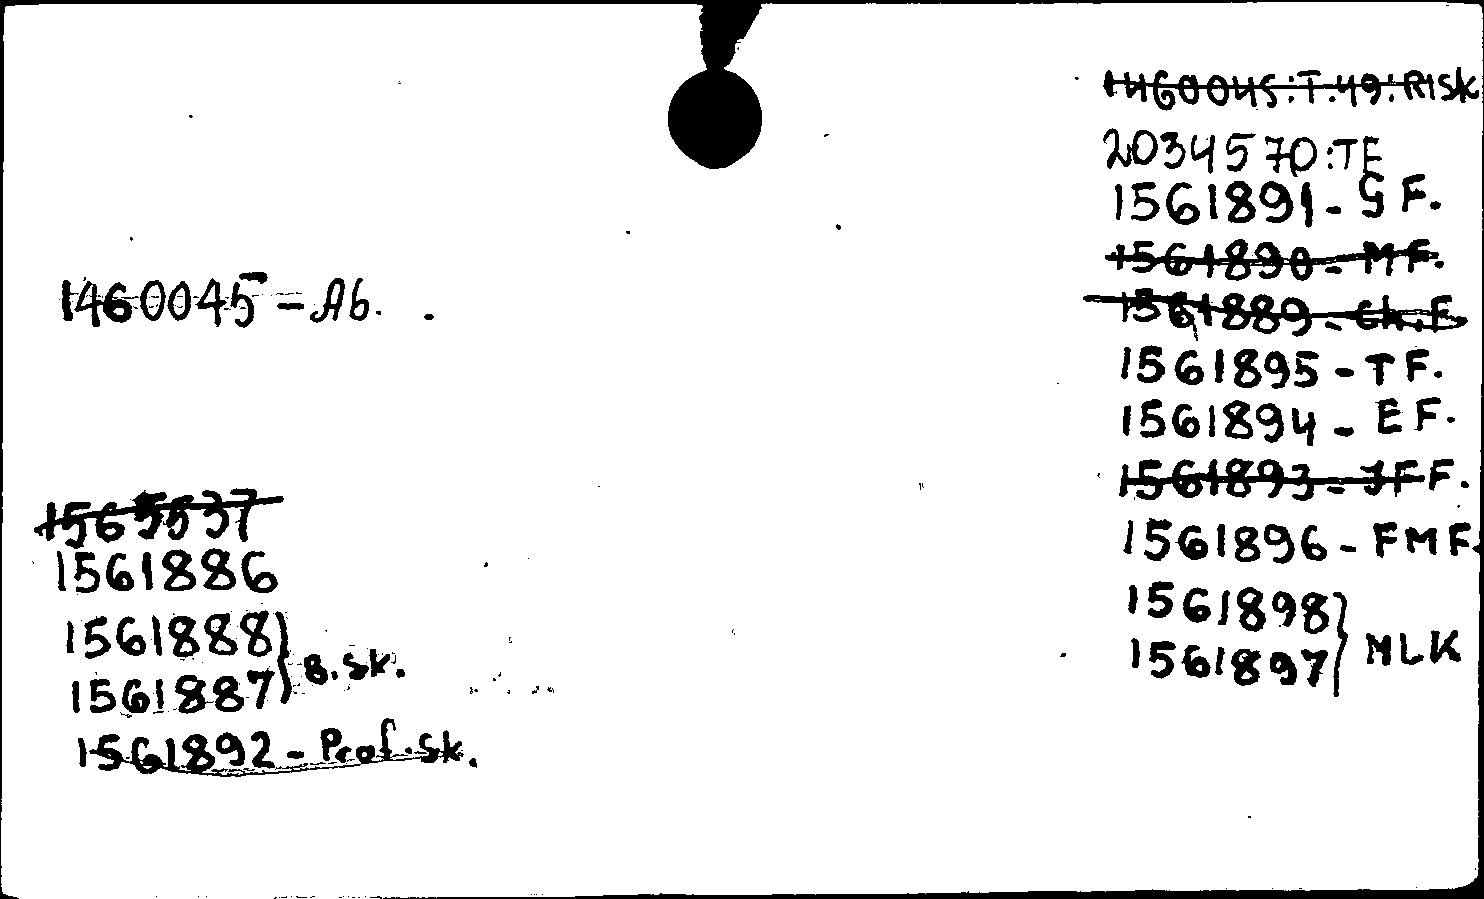 1460045 – Ab.
1565537
1561886
1561888
1561887 } B.Sk.
1561892 – Prof.Sk.
1460045:T.49:RISK
2034570:TE
1561891 - GF.
1561890 - MF.
1561889 - Ch.F
1561895 - TF.
1561894 - EF.
1561893 - JFF.
1561896 - FMF.
1561898
1561897 } MLK